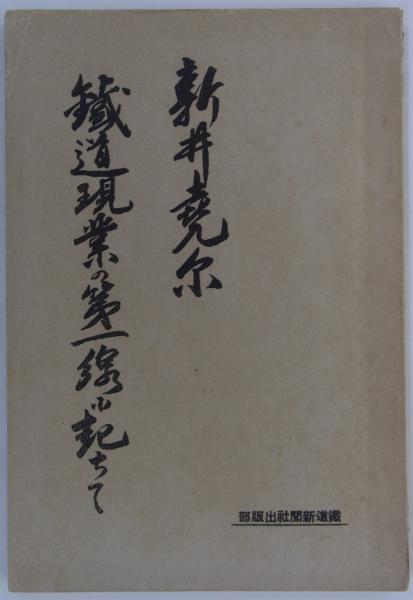 新井堯尓
鐵道現業の第一線に起ちて
鐵道新聞社出版部